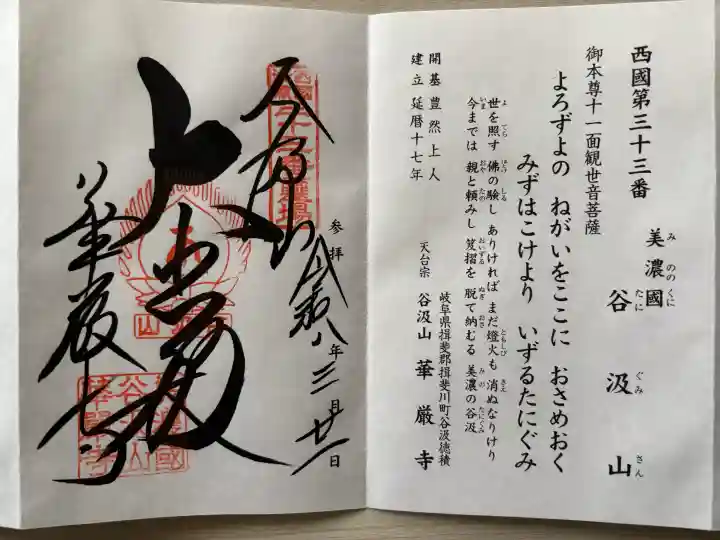 西國第三十三番
美濃國
みののくに
谷汲山
たにぐみさん
御本尊十一面観世音菩薩
よろずよの ねがいをここに おさめおく
みずはこけより いずるたにぐみ
世を照す 佛の験し ありければ まだ燈火も 消ぬなりけり
今までは 親と頼みし 笈摺を 脱て納むる 美濃の谷汲
開基 豊然上人
建立 延暦十七年
岐阜県揖斐郡揖斐川町谷汲徳積
天台宗 谷汲山 華厳寺
参拝
年三月廿一日
谷汲山
華厳寺